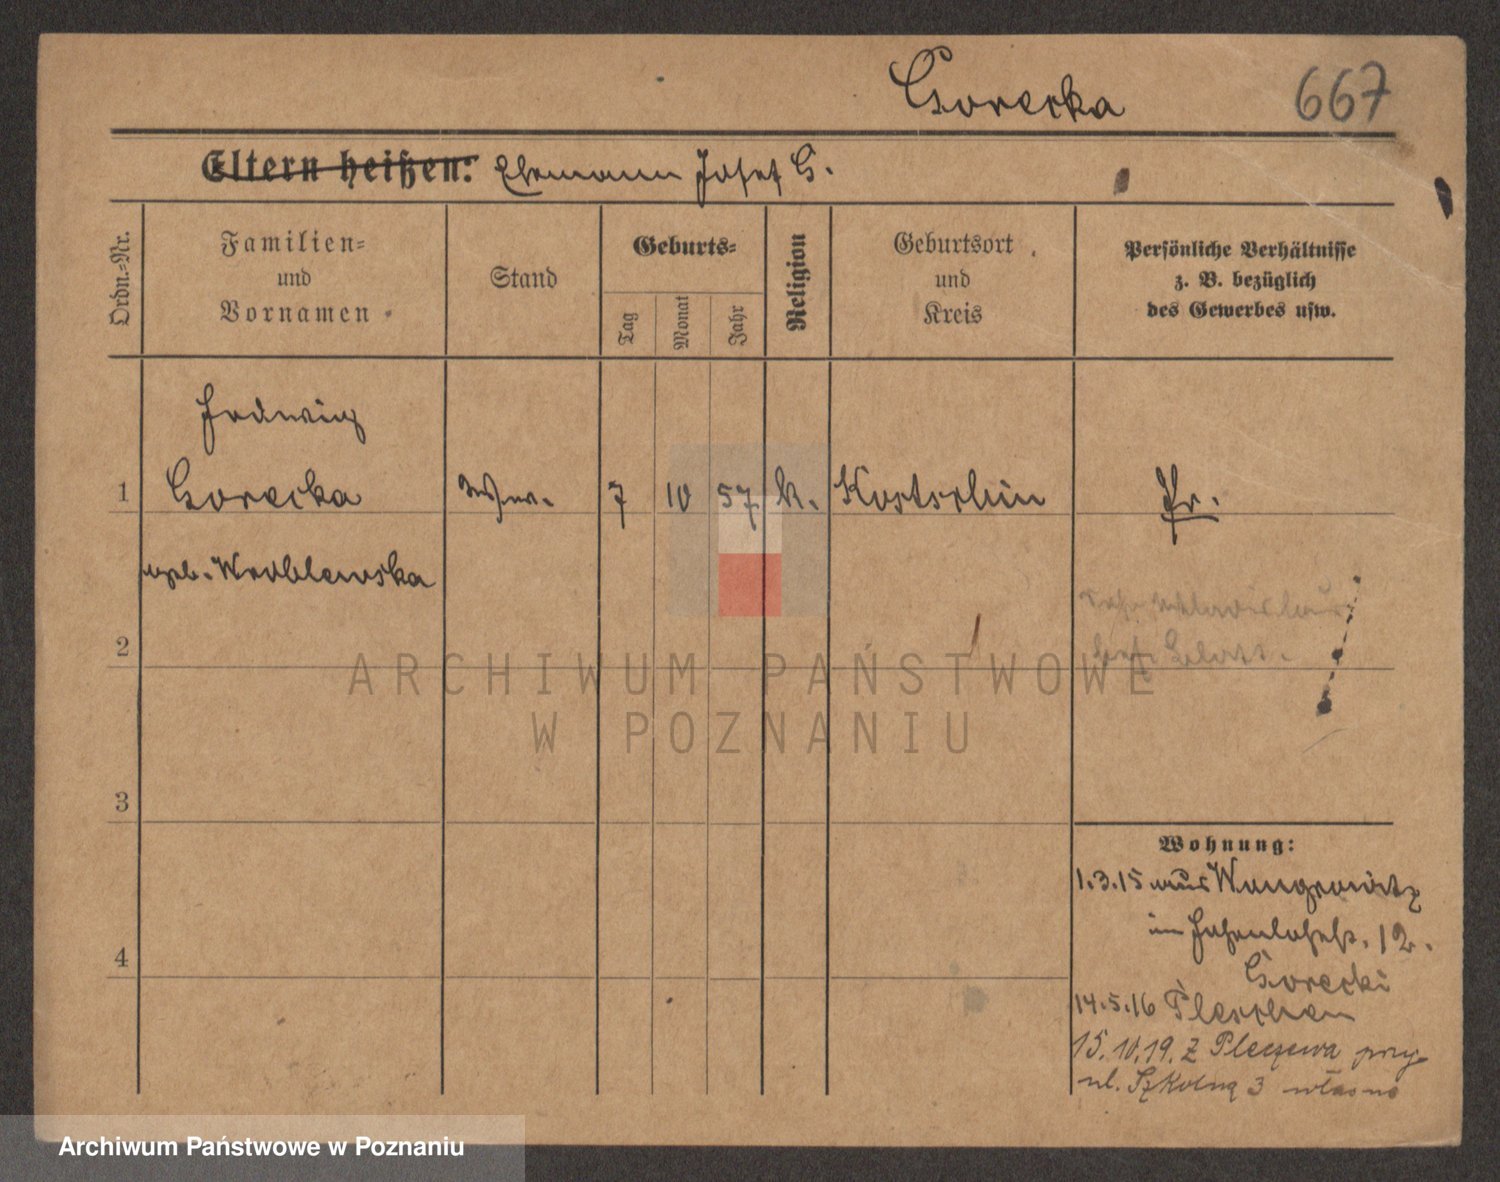 Gorecka 667
Eltern heißen: Ehemann Josef G.
Ordn.-Nr.
Familien-
und
Vornamen
Stand
Geburts-
Tag
Monat
Jahr
Religion
Geburtsort
und
Kreis
Persönliche Verhältnisse
z. B. bezüglich
des Gewerbes usw.
Hedwig
1 Gorecka Wwe. 7 10 57 k. Kostschin Pr.
geb. Wroblewska
2
3
4
Wohnung:
1.3.15 aus Wongrowitz
Gorecki
14.5.16 Pleschen
15.10.19. z Pleszewa przy
ul. Szkolną 3 własne
ARCHIWUM PAŃSTWOWE
W POZNANIU
Archiwum Państwowe w Poznaniu